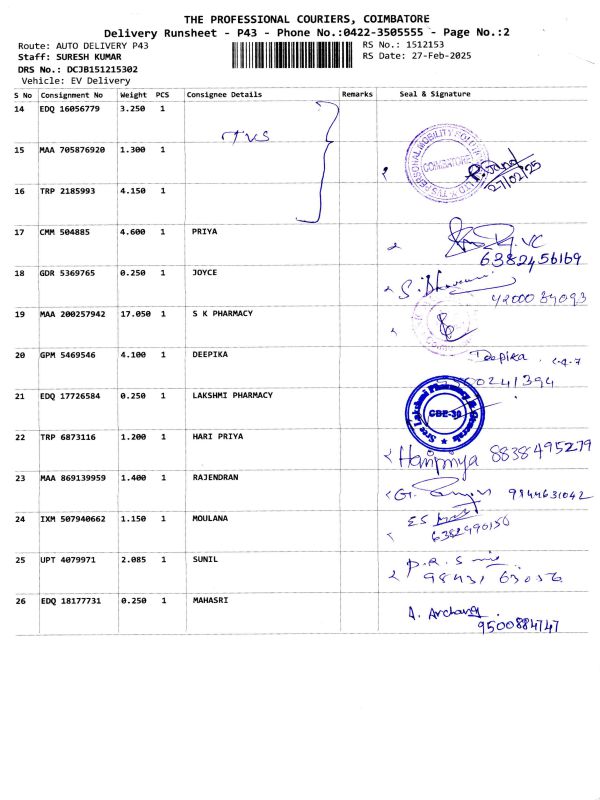 THE PROFESSIONAL COURIERS, COIMBATORE
Delivery Runsheet - P43 - Phone No.:0422-3505555 - Page No.:2
Route: AUTO DELIVERY P43 RS No.: 1512153
Staff: SURESH KUMAR RS Date: 27-Feb-2025
DRS No.: DCJB151215302
Vehicle: EV Delivery
S No Consignment No Weight PCS Consignee Details Remarks Seal & Signature
14 EDQ 16056779 3.250 1
TVS
15 MAA 705876920 1.300 1
COIMBATORE
27/02/25
16 TRP 2185993 4.150 1
17 CMM 504885 4.600 1 PRIYA
6382456169
18 GDR 5369765 0.250 1 JOYCE
19 MAA 200257942 17.050 1 S K PHARMACY
20 GPM 5469546 4.100 1 DEEPIKA Deepika
21 EDQ 17726584 0.250 1 LAKSHMI PHARMACY
Sree Lakshmi Pharmacy & Generals
CBE-30
22 TRP 6873116 1.200 1 HARI PRIYA
Haripriya 8838495279
23 MAA 869139959 1.400 1 RAJENDRAN
9844631042
24 IXM 507940662 1.150 1 MOULANA
6382490156
25 UPT 4079971 2.085 1 SUNIL
26 EDQ 18177731 0.250 1 MAHASRI
9500884747